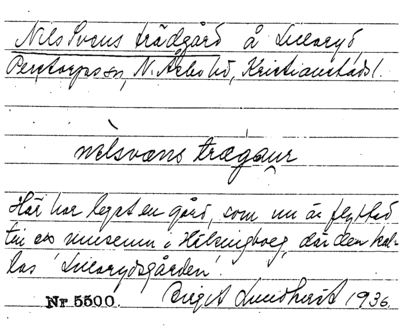 Nils Svens trädgård å Lillaryd
Perstorps sn, N. Åsbo hd, Kristianstads l.
nilsvæns trægaur
Här har legat en gård, som nu är flyttad
till ett museum i Hälsingborg, där den kal-
las 'Lillarydsgården'.
Nr 5500. Birgit Lundqvist 1936.